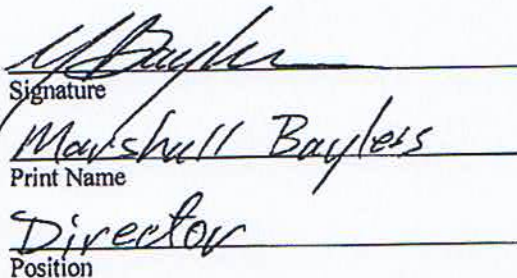 Signature
Marshall Baylers
Print Name
Director
Position